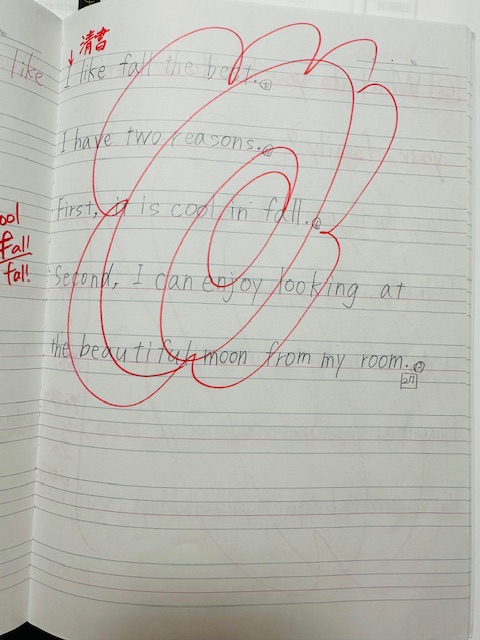 清書
I like fall the best.
I have two reasons.
First, it is cool in fall.
Second, I can enjoy looking at
the beautiful moon from my room.
27
like
ool
fall
fall